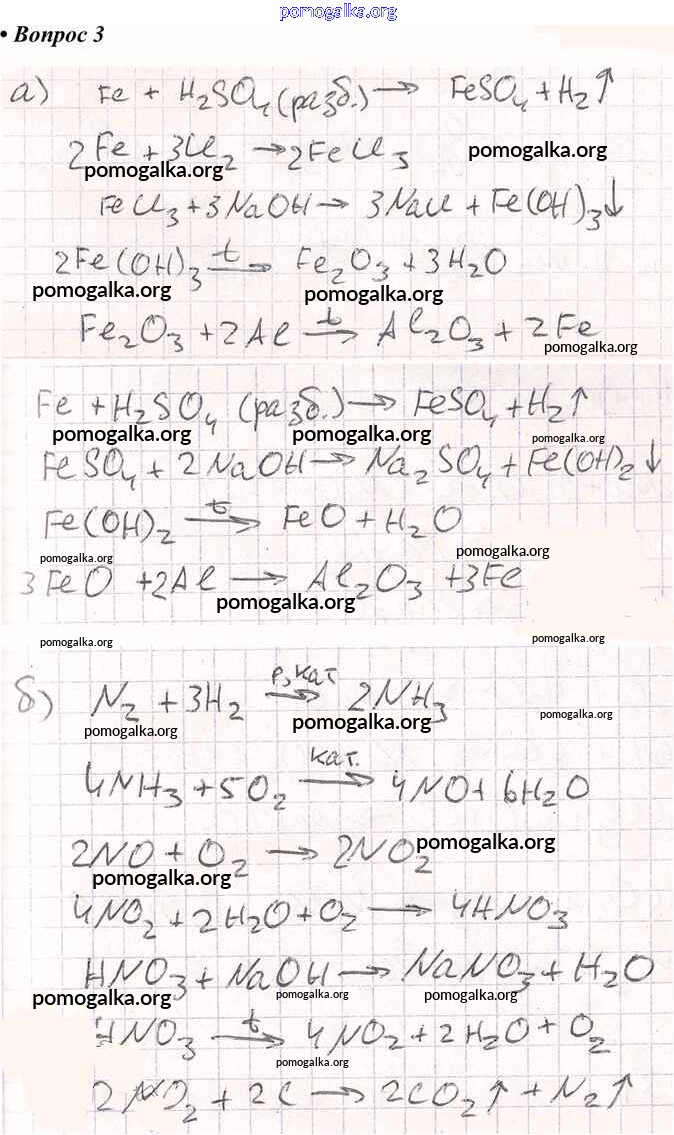 pomogalka.org
• Вопрос 3
а) Fe + H₂SO₄ (разб.) → FeSO₄ + H₂↑
2Fe + 3Cl₂ → 2FeCl₃
pomogalka.org pomogalka.org
FeCl₃ + 3NaOH → 3NaCl + Fe(OH)₃↓
2Fe(OH)₃ →t Fe₂O₃ + 3H₂O
pomogalka.org pomogalka.org
Fe₂O₃ + 2Al →t Al₂O₃ + 2Fe
pomogalka.org
Fe + H₂SO₄ (разб.) → FeSO₄ + H₂↑
pomogalka.org pomogalka.org pomogalka.org
FeSO₄ + 2NaOH → Na₂SO₄ + Fe(OH)₂↓
Fe(OH)₂ →t FeO + H₂O
pomogalka.org pomogalka.org
3FeO + 2Al → Al₂O₃ + 3Fe
pomogalka.org
pomogalka.org pomogalka.org
б) N₂ + 3H₂ →p, кат 2NH₃
pomogalka.org pomogalka.org pomogalka.org
4NH₃ + 5O₂ →кат. 4NO + 6H₂O
2NO + O₂ → 2NO₂ pomogalka.org
pomogalka.org
4NO₂ + 2H₂O + O₂ → 4HNO₃
HNO₃ + NaOH → NaNO₃ + H₂O
pomogalka.org pomogalka.org pomogalka.org
HNO₃ →t 4NO₂ + 2H₂O + O₂
pomogalka.org
2NO₂ + 2C → 2CO₂↑ + N₂↑